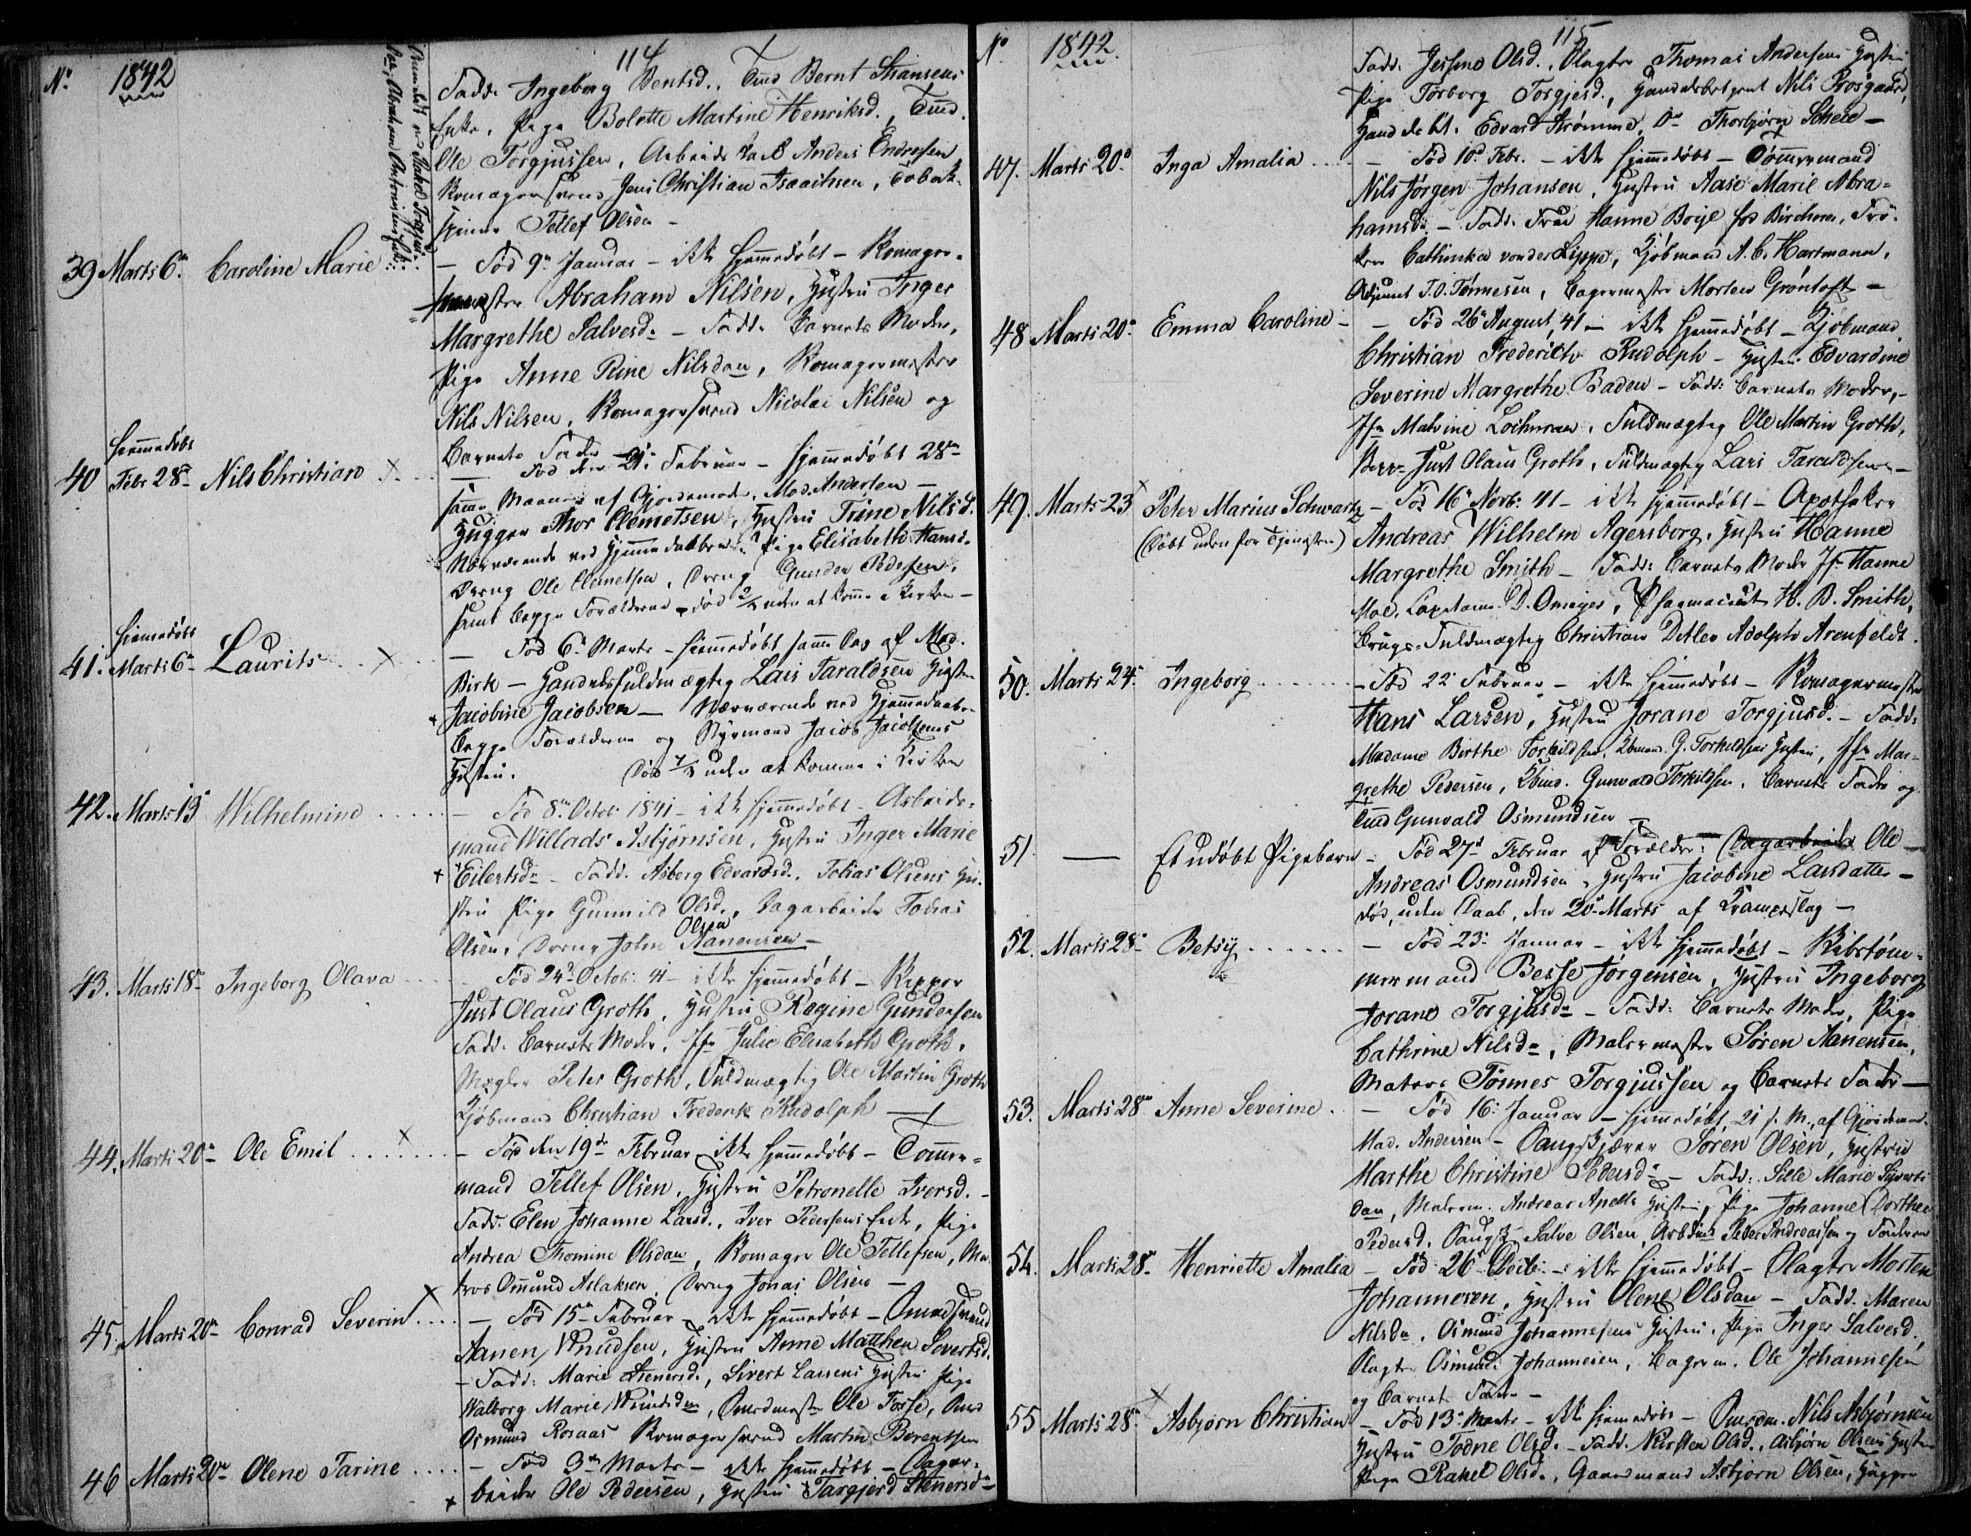 114
No 1842
Fadd: Ingeborg Berntsd., Smd Bernt Hansens
Enke, Pige Bolette Martine Henriksd., Smd.
Ole Torgjussen, Arbeids Anders Endresen
Skomagersvend Jens Christian Isaachsen, Tobak-
spinder Tellef Olsen –
39 Marts 6te Caroline Marie
– Fød 9de Januar – ikke hjemmedøbt – Skomager-
mester Abraham Nilsen, Hustru Inger
Margrethe Salvesd. – Fadd. Barnets Moder,
Pige Anne Rine Nilsdatr, Skomagermester
Nils Nilsen, Skomagersvend Nicolai Nilsen og
Barnets Fader
hjemmedøbt
40 Febr 28de Nils Christian
Fød den 21de Februar – hjemmedøbt 28de
samme Maaned af Gjordemoder, Mad. Andersen –
Hugger Thor Clemetsen, Hustru Trine Nilsd.
Nærværende ved Hjemmedaaben: Pige Elisabeth Hansd.
Dreng Ole Clemetsen, Dreng Gunder Pedersen,
samt begge Forældrene – død uden at komme i Kirken –
hjemmedøbt
41. Marts 6te Laurits
– Fød 6te Marts – hjemmedøbt samme Dag af Mad.
Birk – Handelsfuldmægtig Lars Taraldsen Hustru
Jacobine Jacobsen – Nærværende ved Hjemmedaaben
begge Forældrene og Styrmand Jacob Jacobsens
Hustru. Død uden at komme i Kirken
42. Marts 13 Wilhelmine
– Fød 8de Octob: 1841 – ikke hjemmedøbt – Arbeids-
mand Willads Asbjørnsen, Hustru Inger Marie
Eilertsdr – Fadd. Asborg Edvardsd., Tobias Olsens Hu-
stru Pige Gunnild Olsd., Dagarbeider Tobias
Olsen, Dreng John Aanensen – Olsen
43. Marts 18de Ingeborg Olava
Fød 24de Octob: 41 – ikke hjemmedøbt – Skipper
Just Olaus Groth, Hustru Ragine Gundersen
Fadd. Barnets Moder, Jfr Julie Elisabeth Groth,
Mægler Peter Groth, Fuldmægtig Ole Martin Groth
Kjøbmand Christian Frederik Rudolph –
44. Marts 20de Ole Emil
– Fød den 19de Februar ikke hjemmedøbt – Tømmer-
mand Tellef Olsen, Hustru Petronelle Iversd. –
Fadd. Elen Johanne Larsd., Iver Pedersens Enke, Pige
Andrea Thomine Olsdatr, Skomager Ole Tellefsen, Ma-
tros Omund Aslaksen, Dreng Jonas Olsen –
45. Marts 20de Conrad Severin
– Fød 15de Februar – ikke hjemmedøbt –
Aanen Knudsen, Hustru Anne Matthea Severtsd.
– Fadd: Marie Stenersd., Sivert Larsens Hustru Pige
Walborg Marie Knudsdr, Ole Fosse,
Osmund Rosaas Skomagersvend Martin Berentsen
46 Marts 20de Olene Tarine
– Fød 3de Marts – ikke hjemmedøbt – Dagar-
beider Ole Pedersen, Hustru Targjerd Stenersdr
115
No 1842
Fadd. Jessine Olsd., Slagter Thomas Andersens Hustru
Pige Torborg Torgjesd., Handelsbetjent Nils Rosgaard,
Handelsbt. Edvart Strømme, Do Thorbjørn Scheie –
47. Marts 20de Inga Amalia
– Fød 10de Febr. – ikke hjemmedøbt – Tømmermand
Nils Jørgen Johansen, Hustru Aase Marie Abra-
hamsd. – Fadd. Frue Hanne Boije Frø-
ken Cathinka von der Lippe, Kjøbmand A. C. Hartmann,
Adjunct T. O. Tønnesen, Bagermester Morten Grøntoft –
48 Marts 20de Emma Caroline –
– Fød 26 August 41 – ikke hjemmedøbt – Kjøbmand
Christian Frederich Rudolph – Hustru Edvardine
Severine Margrethe Baden – Fadd: Barnets Moder, –
Jfr Malvine Lochmann, Fuldmægtig Ole Martin Groth,
Just Olaus Groth, Fuldmægtig Lars Taraldsen –
49. Marts 23 Peter Marius Schwartz
(døbt uden for Tjenesten)
– Fød 16 Novb: 41 – ikke hjemmedøbt – Apotheker
Andreas Wilhelm Agersborg, Hustru Hanne
Margrethe Smith – Fadd: Barnets Moder Jfr Hanne
Moe, Captaine D. Omeyer, Pharmaceut H. B. Smith,
Brugs-Fuldmægtig Christian Detlev Adolph Arenfeldt.
50. Marts 24de Ingeborg
– Fød 22 Februar – ikke hjemmedøbt – Skomagermester
Hans Larsen, Hustru Jorand Torgjusd. – Fadd:
Madame Birthe Torkildsen, G. Torkildsens Hustru, Jfr Mar-
grethe Pedersen, Gunvald Torkildsen, Barnets Fader og
Smd Gunvald Osmundsen –
51 – Et udøbt Pigebarn
– Fød 27de Februar af Forældre: Dagarbeider Ole
Andreas Osmundsen, Hustru Jacobine Larsdatter –
død, uden Daab, den 20de Marts af Krampeslag –
52. Marts 28de Betsy
– Fød 23de Januar – ikke hjemmedøbt – Skibstøm-
mermand Besse Jørgensen, Hustru Ingeborg
Jorand Torgjusdr – Fadd: Barnets Moder, Pige
Cathrine Nilsdr, Malermester Søren Aanensen,
Matros Tønnes Torgjussen og Barnets Fader –
53. Marts 28de Anne Severine
– Fød 16de Januar – hjemmedøbt 21 s. M. af Gjordemoder
Mad. Andersen – Søren Olsen, Hustru
Marthe Christine Pedersdr – Fadd: Sille Marie
datr, Andreas Hustru, Pige Johanne Dorthea
Pedersd. Salve Olsen, Peder Andreassen og Faderen
54. Marts 28de Henriette Amalia
– Fød 26de Decb: – ikke hjemmedøbt – Slagter Morten
Johannesen, Hustru Olene Olsdatr – Fadd. Maren
Nilsdr, Osmund Johannesens Hustru, Pige Inger Salvesd.
Slagter Osmund Johannesen, Bagerm. Ole Johannesen
og Barnets Fader –
55 Marts 28de Asbjørn Christian
– Fød 13de Marts – ikke hjemmedøbt – Nils Asbjørnsen
Hustru Todne Olsd. – Fadd. Kirsten Olsd., Asbjørn Olsens Hustru
Pige Rakel Olsd., Gaardmand Asbjørn Olsen, Hugger